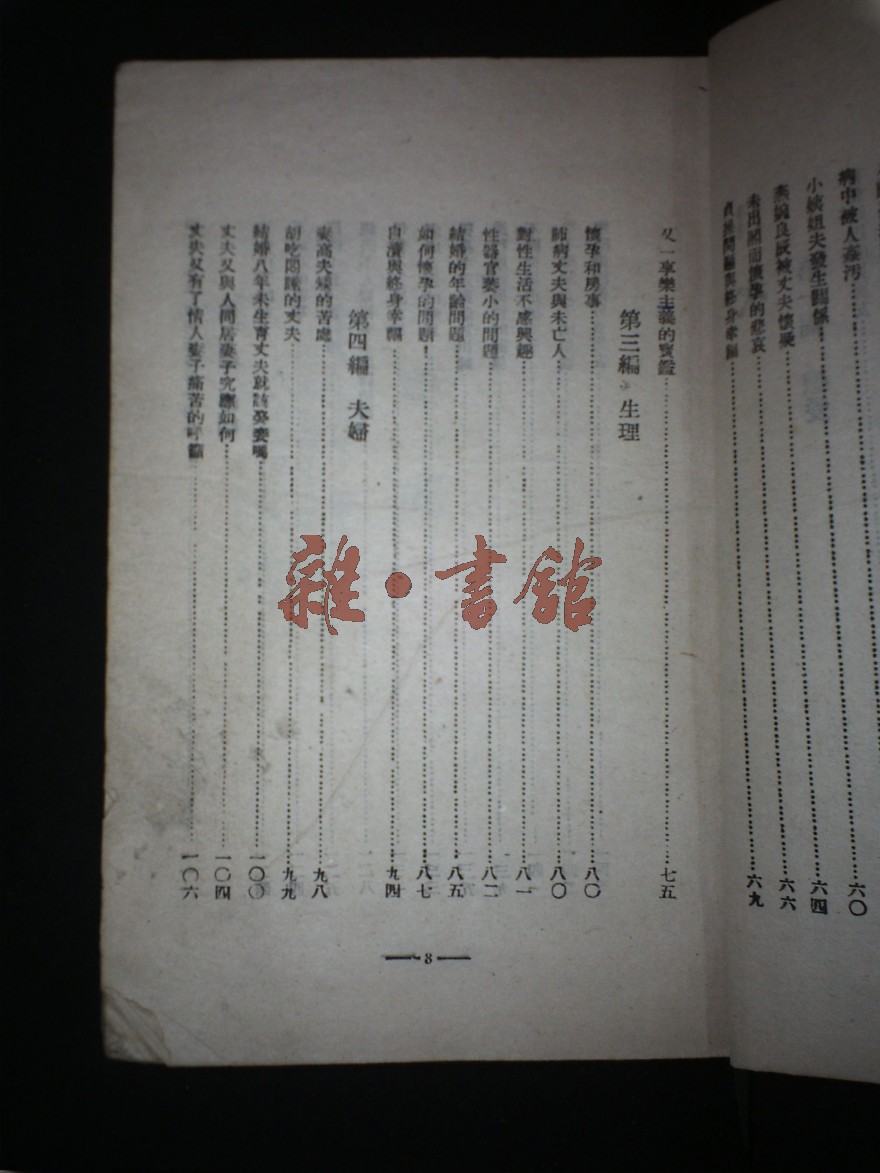 病中被人姦污 六〇
小姨姐夫發生關係 六四
燕婉良緣被丈夫懷疑 六六
未出閣而懷孕的悲哀 六九
問題與終身幸福
又一享樂主義的寶鑑 七五
第三編 生理
懷孕和房事 八〇
肺病丈夫與未亡人 八〇
對性生活不感興趣 八一
性器官萎小的問題 八二
結婚的年齡問題 八五
如何懷孕的問題 八七
自瀆與終身幸福 九四
第四編 夫婦
妻高夫矮的苦處 九八
胡吃悶睡的丈夫 九九
結婚八年未生育丈夫就該娶妾嗎 一〇〇
丈夫又與人同居妻子究應如何 一〇四
丈夫又有了情人妻子痛苦的呼籲 一〇六
8
雜·書館